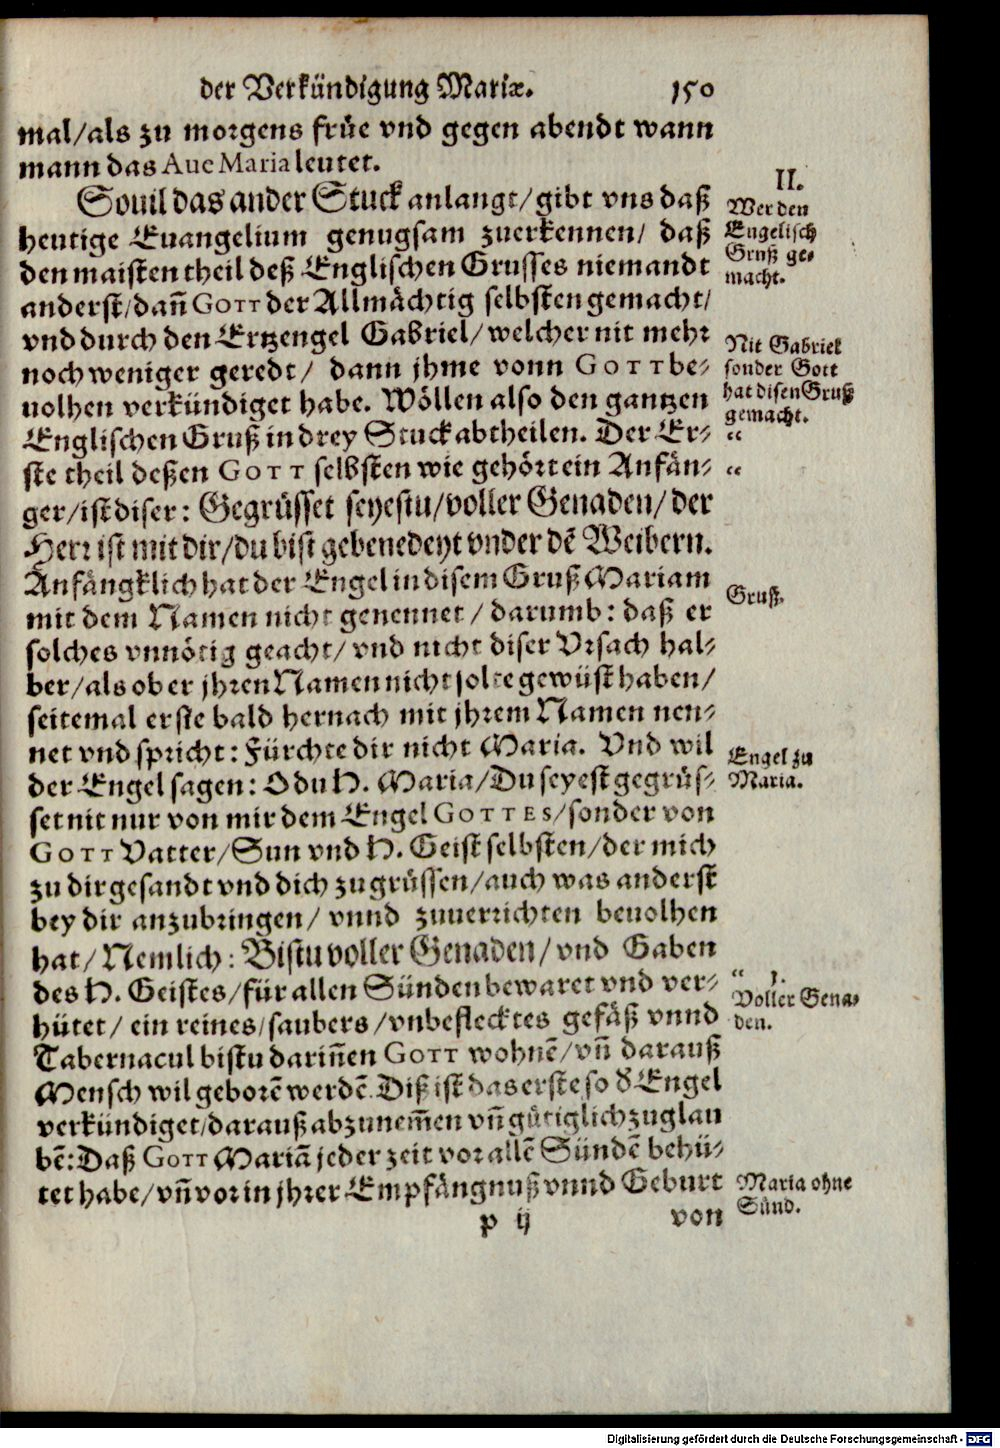 der Verkündigung Mariæ. 150
mal/als zu morgens früe vnd gegen abendt wann
mann das Aue Maria leutet.
Souil das ander Stuck anlangt/gibt vns daß
heutige Euangelium genugsam zuerkennen/ daß
den maisten theil deß Englischen Grusses niemandt
anderst/dañ GOTT der Allmächtig selbsten gemacht/
vnd durch den Ertzengel Gabriel/welcher nit mehr
noch weniger geredt/ dann jhme vonn GOTT be-
uolhen verkündiget habe. Wöllen also den gantzen
Englischen Gruß in drey Stuck abtheilen. Der Er-
ste theil deßen GOTT selbsten wie gehört ein Anfän-
ger/ist diser: Gegrüsset seyestu/voller Genaden/ der
Herr ist mit dir/du bist gebenedeyt vnder dē Weibern.
Anfängklich hat der Engel in disem Gruß Mariam
mit dem Namen nicht genennet/ darumb: daß er
solches vnnötig geacht/ vnd nicht diser Vrsach hal-
ber/als ob er jhren Namen nicht solte gewüst haben/
seitemal er ste bald hernach mit jhrem Namen nen-
net vnd spricht: Fürchte dir nicht Maria. Vnd wil
der Engel sagen: O du H. Maria/Du seyest gegrüs-
set nit nur von mir dem Engel GOTTES/sonder von
GOTT Vatter/Sun vnd H. Geist selbsten/der mich
zu dir gesandt vnd dich zugrüssen/auch was anderst
bey dir anzubringen/ vnnd zuuerrichten beuolhen
hat/Nemlich: Bistu voller Genaden/vnd Gaben
des H. Geistes/für allen Sünden bewaret vnd ver-
hütet/ ein reines/saubers/vnbeflecktes gefäß vnnd
Tabernacul bistu dariñen GOTT wohnē/vñ darauß
Mensch wil geborē werdē. Diß ist das erste so d' Engel
verkündiget/darauß abzunem̄en vñ gütiglich zuglau
bē: Daß GOTT Mariā jeder zeit vor allē Sündē behü-
tet habe/vñ vor in jhrer Empfängnuß vnnd Geburt
p ij von
II.
Wer den
Englisch
Gruß ge-
macht.
Nit Gabriel
sonder Gott
hat disen Gruß
gemacht.
“
“
Gruß.
Engel zu
Maria.
“ 1.
Voller Gena-
den.
Maria ohne
Sünd.
Digitalisierung gefördert durch die Deutsche Forschungsgemeinschaft - DFG